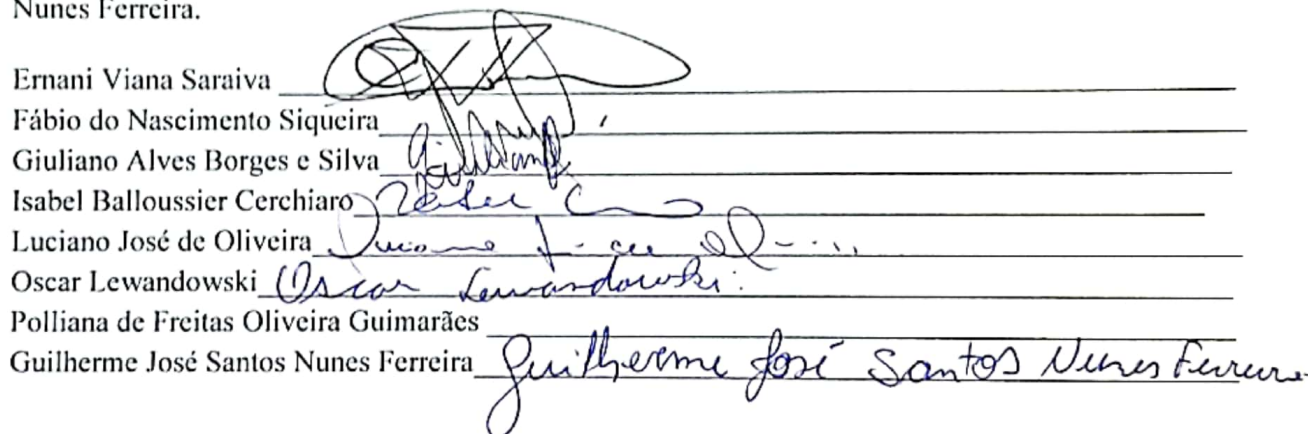 Nunes Ferreira.
Ernani Viana Saraiva
Fábio do Nascimento Siqueira
Giuliano Alves Borges e Silva
Isabel Balloussier Cerchiaro
Luciano José de Oliveira
Oscar Lewandowski Oscar Lewandowski
Polliana de Freitas Oliveira Guimarães
Guilherme José Santos Nunes Ferreira Guilherme José Santos Nunes Ferreira